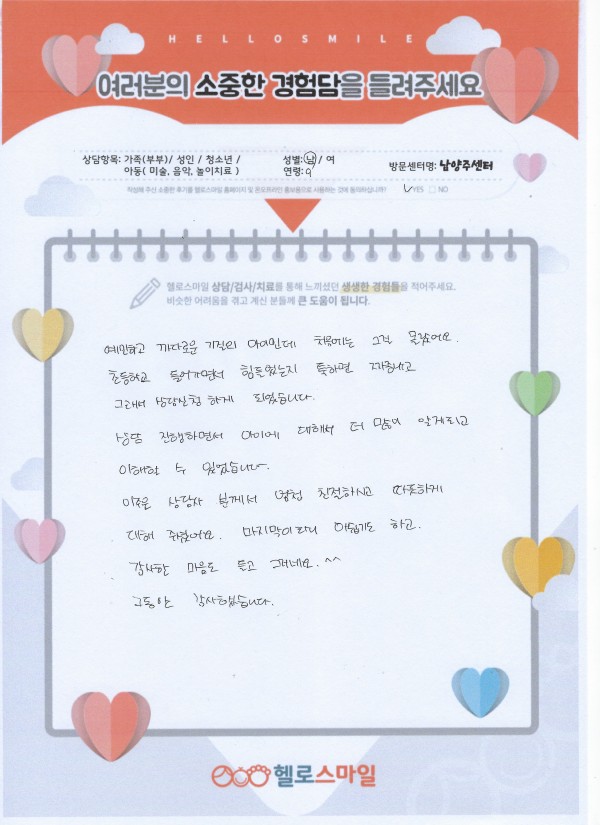 HELLOSMILE
여러분의 소중한 경험담을 들려주세요
상담항목: 가족(부부)/ 성인 / 청소년 /
아동( 미술, 음악, 놀이치료 )
성별: 남 / 여
연령: 9
방문센터명: 남양주센터
작성해 주신 소중한 후기를 헬로스마일 홈페이지 및 온오프라인 홍보용으로 사용하는 것에 동의하십니까? ✓YES □ NO
헬로스마일 상담/검사/치료를 통해 느끼셨던 생생한 경험들을 적어주세요.
비슷한 어려움을 겪고 계신 분들께 큰 도움이 됩니다.
예민하고 까다로운 기질의 아이인데 처음에는 그걸 몰랐어요.
초등학교 들어가면서 힘들었는지 툭하면 짜증내고
그래서 상담신청 하게 되었습니다.
상담 진행하면서 아이에 대해서 더 많이 알게되고
이해할 수 있었습니다.
상담사 분께서 엄청 친절하시고 따뜻하게
대해 주셨어요. 마지막이라니 아쉽기도 하고.
감사한 마음도 들고 그러네요. ^^
그동안 감사했습니다.
헬로스마일